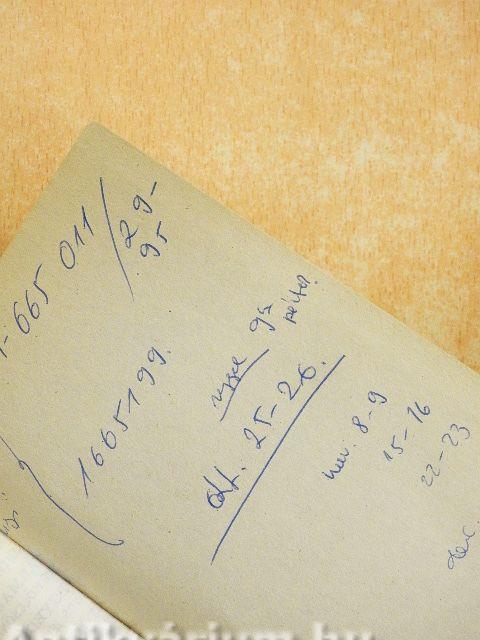 1-665 011/29-
95
1665199.
reggel 9h
péntek.
okt. 25-26.
nov. 8-9
15-16
22-23
dec.
Antikvárium.hu